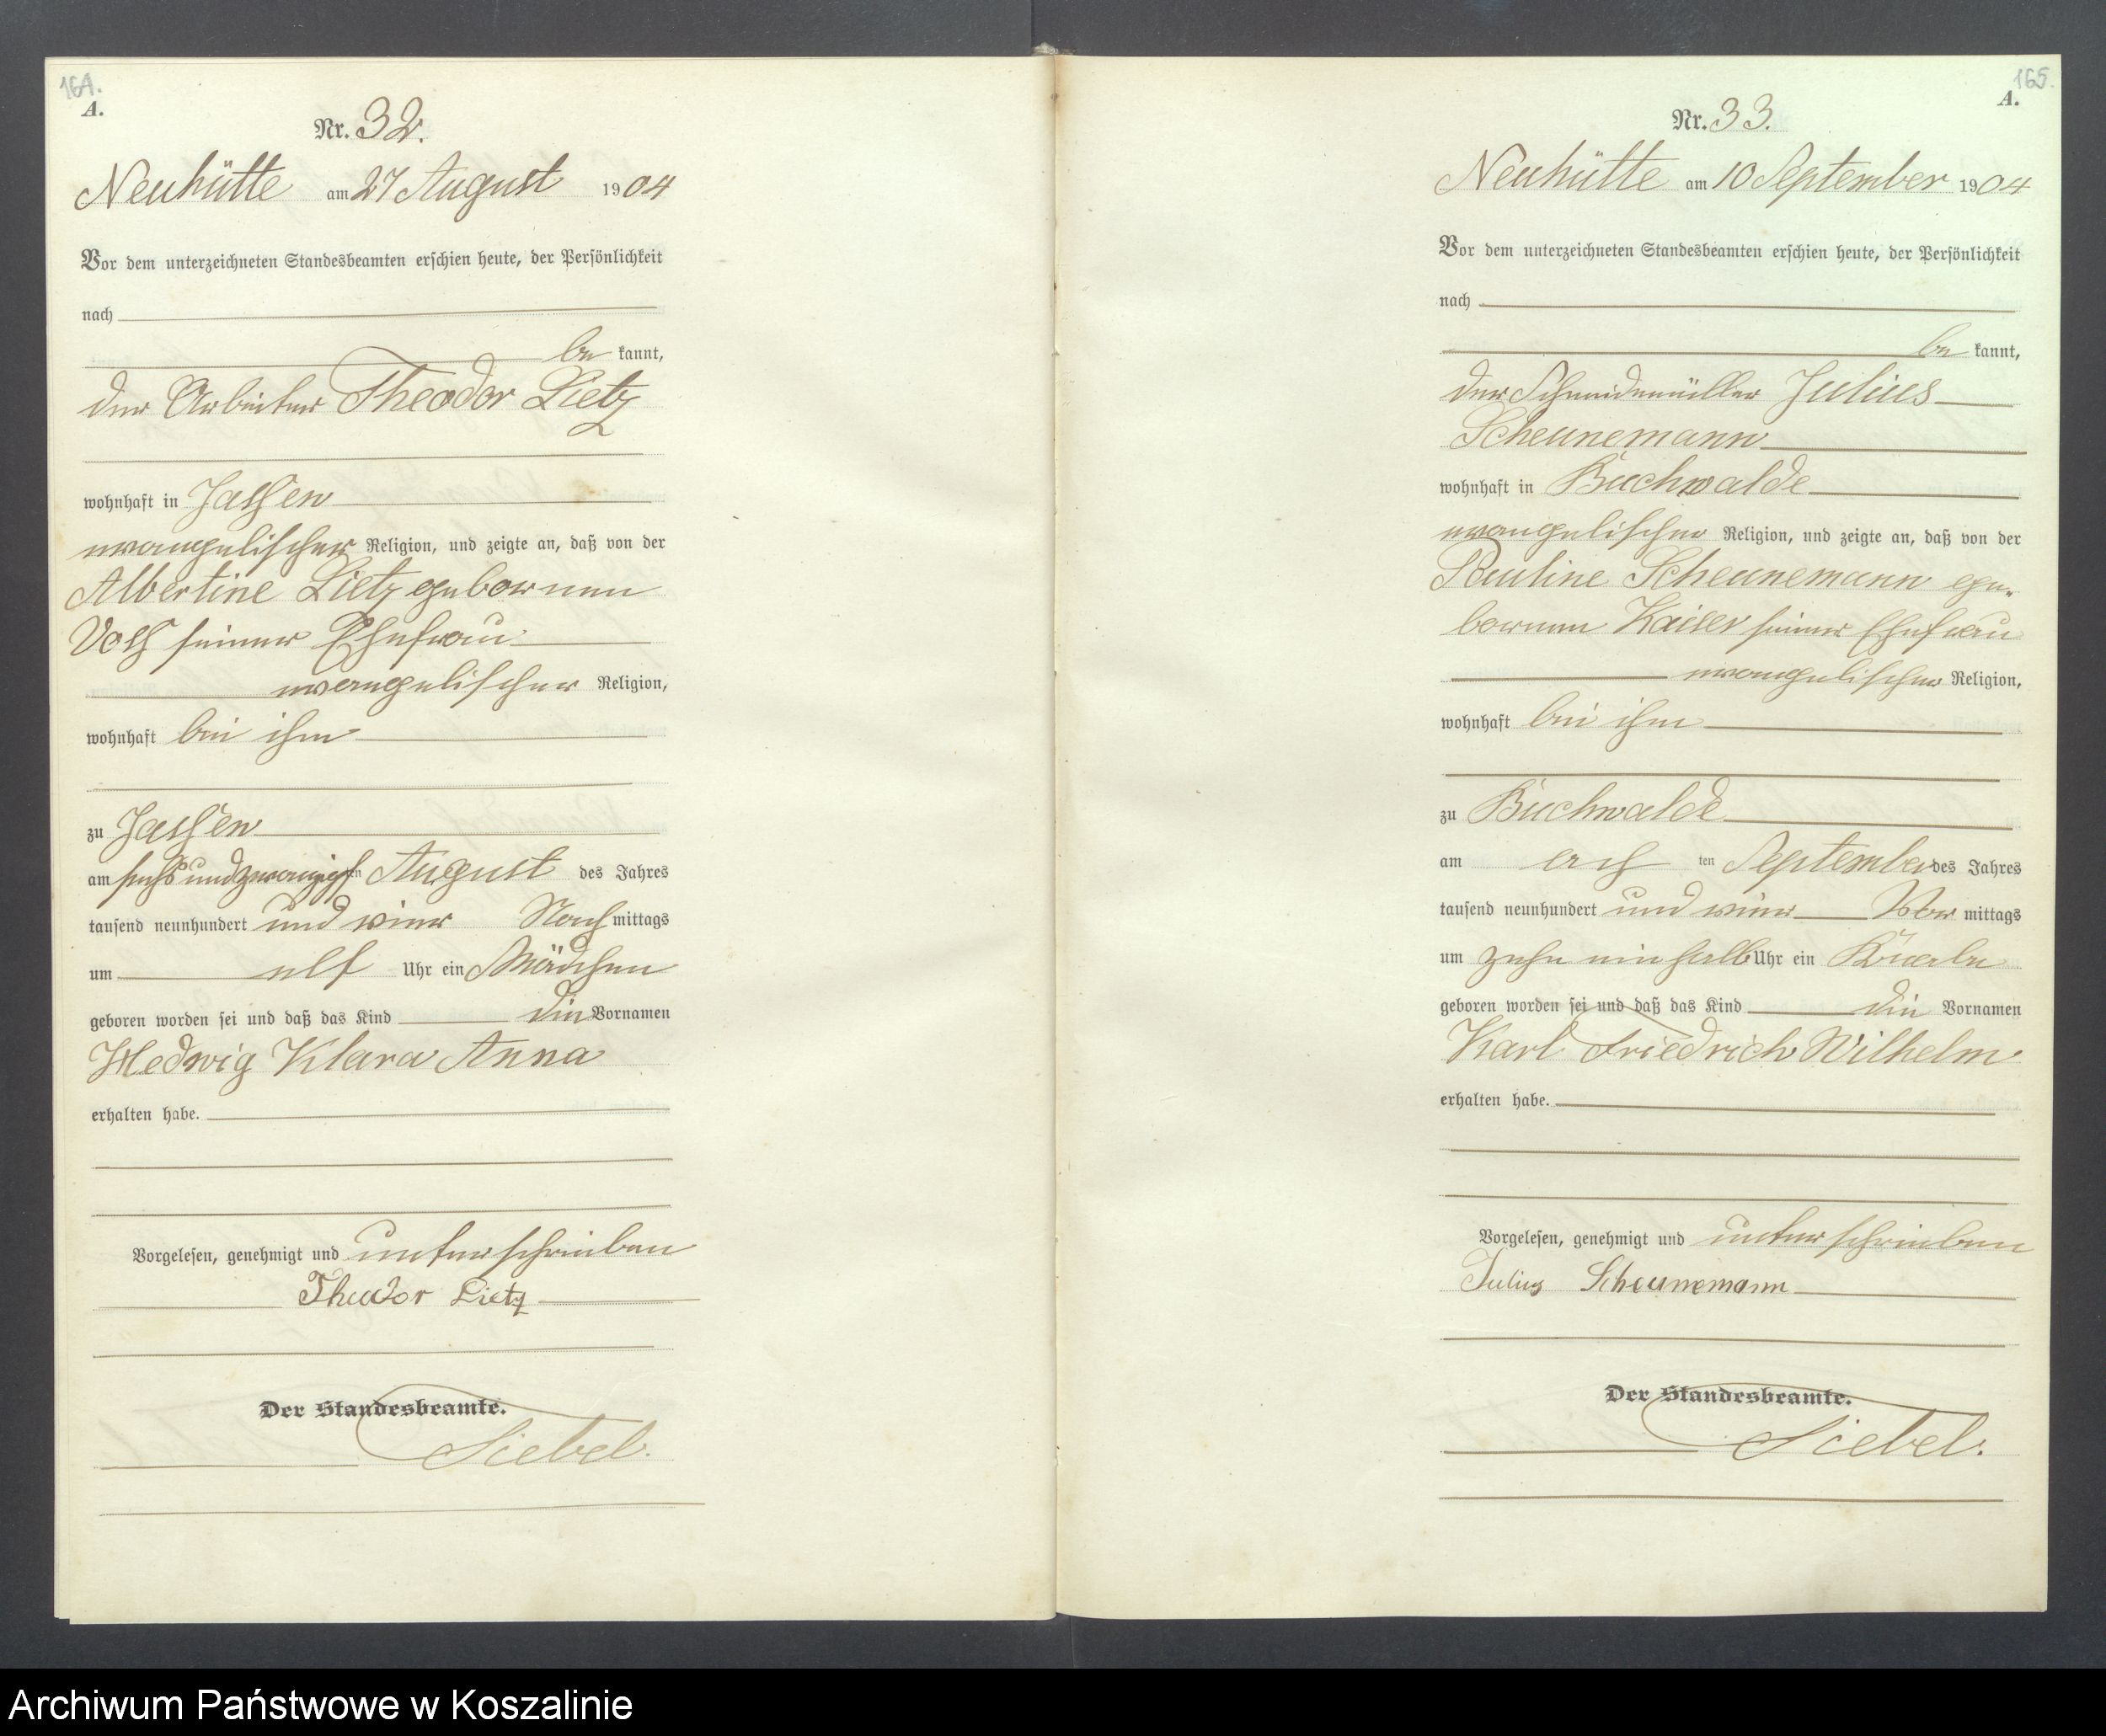 164.
A.
Nr. 32.
Neuhütte am 27 August 1904
Vor dem unterzeichneten Standesbeamten erschien heute, der Persönlichkeit
nach
be kannt,
der Arbeiter Theodor Lietz
wohnhaft in Jassen
evangelischer Religion, und zeigte an, daß von der
Albertine Lietz geborenen
Voß seiner Ehefrau
evangelischer Religion,
wohnhaft bei ihm
zu Jassen
am sechsundzwanzigsten August des Jahres
tausend neunhundert und vier Nachmittags
um elf Uhr ein Mädchen
geboren worden sei und daß das Kind die Vornamen
Hedwig Klara Anna
erhalten habe.
Vorgelesen, genehmigt und unterschrieben
Theodor Lietz
Der Standesbeamte.
Siebel.
165.
A.
Nr. 33.
Neuhütte am 10 September 1904
Vor dem unterzeichneten Standesbeamten erschien heute, der Persönlichkeit
nach
be kannt,
der Schneidemüller Julius
Scheunemann
wohnhaft in Buchwalde
evangelischer Religion, und zeigte an, daß von der
Pauline Scheunemann ge-
borenen Kaiser seiner Ehefrau
evangelischer Religion,
wohnhaft bei ihm
zu Buchwalde
am ten September des Jahres
tausend neunhundert und vier Vor mittags
um zehn ein halb Uhr ein Knabe
geboren worden sei und daß das Kind die Vornamen
Karl Friedrich Wilhelm
erhalten habe.
Vorgelesen, genehmigt und unterschrieben
Julius Scheunemann
Der Standesbeamte.
Siebel.
Archiwum Państwowe w Koszalinie